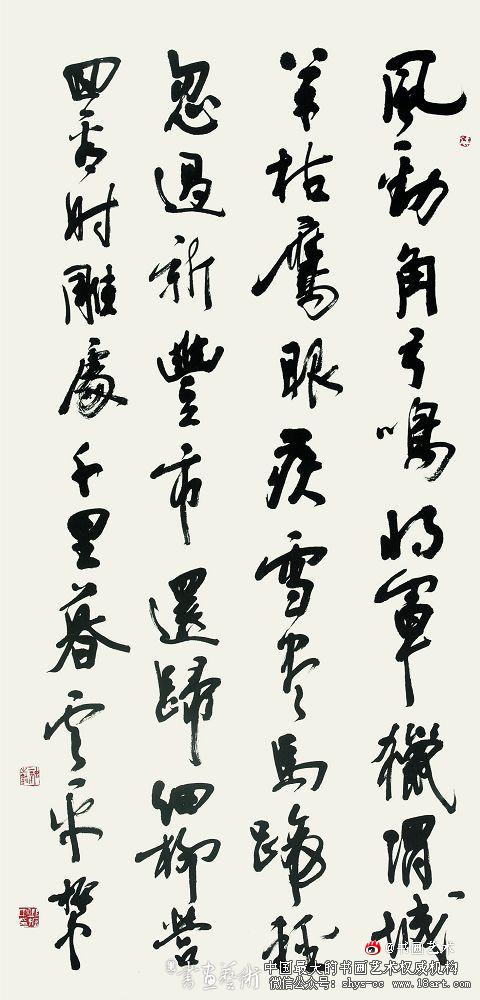 風勁角弓鳴將軍獵渭城
草枯鷹眼疾雪盡馬蹄輕
忽過新豐市還歸細柳營
回看射雕處千里暮云平
@书画艺术
書画藝術
中国最大的书画艺术权威机构
微信公众号：shys-cc www.18art.com